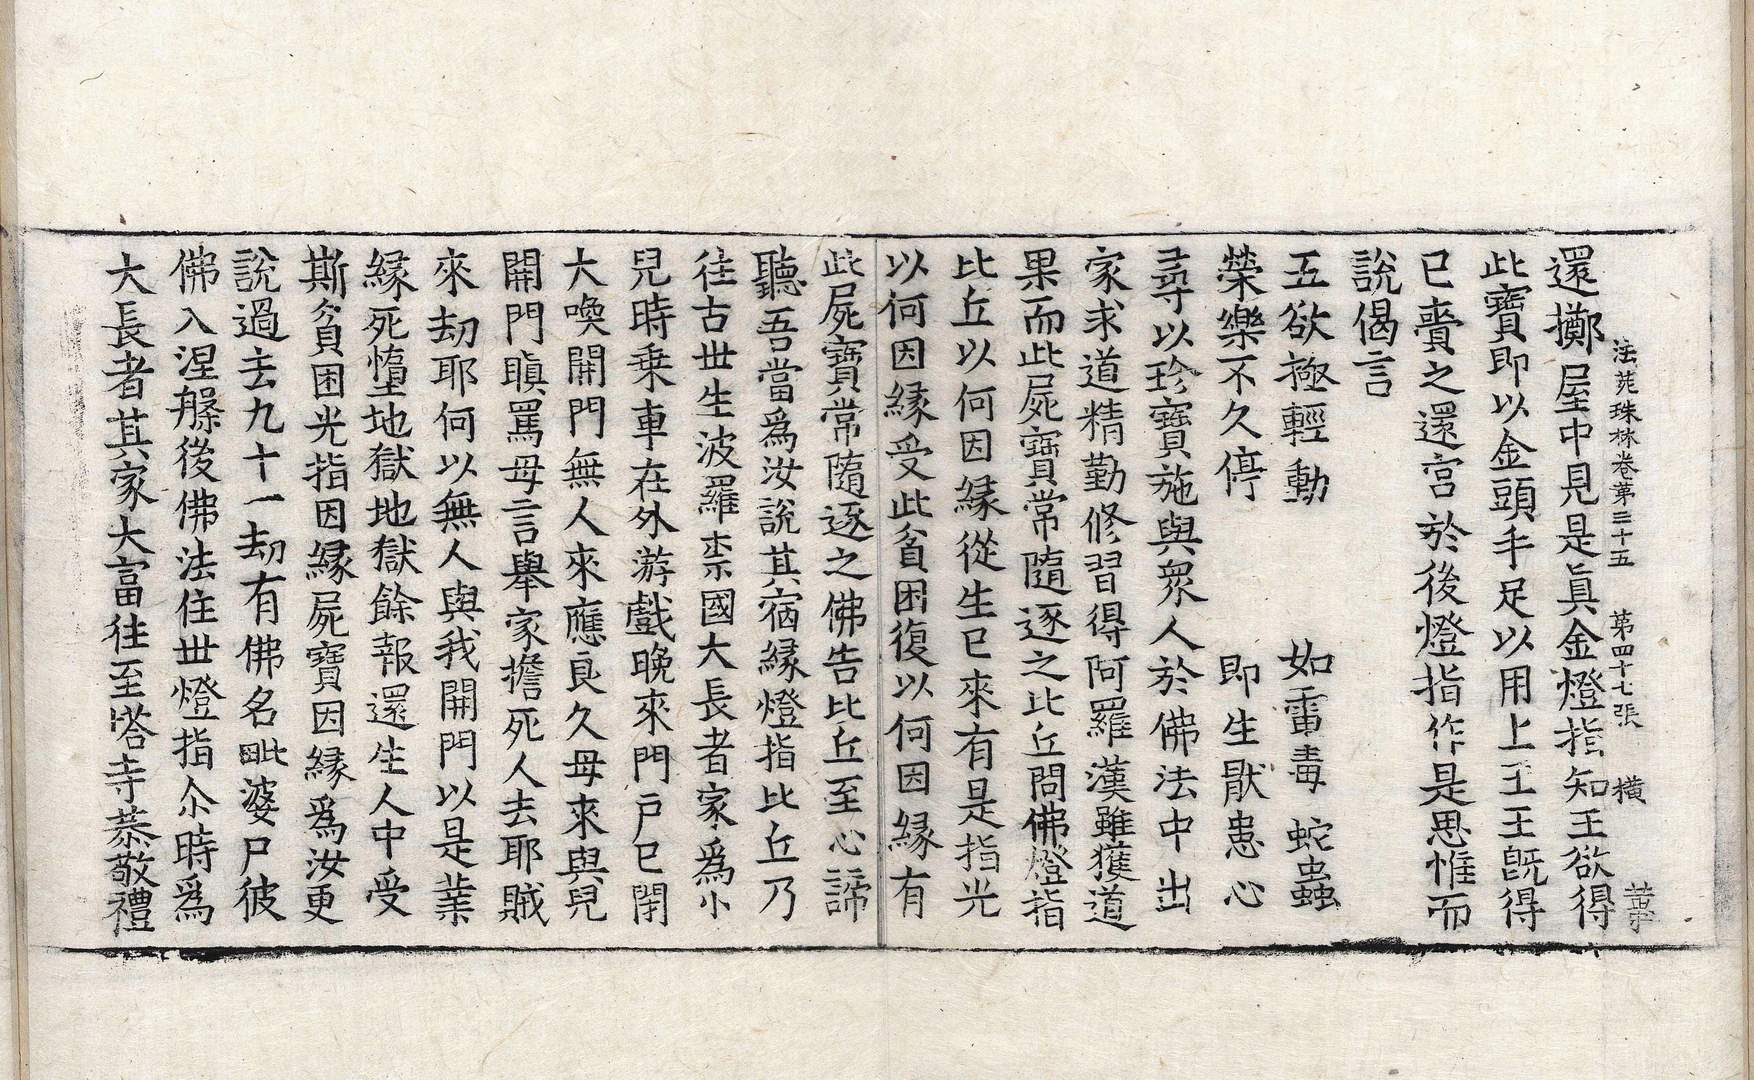 法苑珠林卷第三十五　第四十七張　橫
還擲屋中見是眞金燈指知王欲得
此寶即以金頭手足以用上王王旣得
已賷之還宮於後燈指作是思惟而
說偈言
五欲極輕動　如雷毒蛇蟲
榮樂不久停　即生猒患心
尋以珍寶施與衆人於佛法中出
家求道精勤修習得阿羅漢雖獲道
果而此屍寶常隨逐之比丘問佛燈指
比丘以何因縁從生已來有是指光
以何因縁受此貧困復以何因縁有
此屍寶常隨逐之佛告比丘至心諦
聽吾當爲汝說其宿縁燈指比丘乃
往古世生波羅柰國大長者家爲小
兒時乗車在外游戲晚來門戶已閉
大喚開門無人來應良久母來與兒
開門瞋罵母言舉家擔死人去耶賊
來劫耶何以無人與我開門以是業
縁死墮地獄地獄餘報還生人中受
斯貧困光指因縁屍寶因縁爲汝更
說過去九十一劫有佛名毗婆尸彼
佛入涅槃後佛法住世燈指尒時爲
大長者其家大富往至塔寺恭敬禮